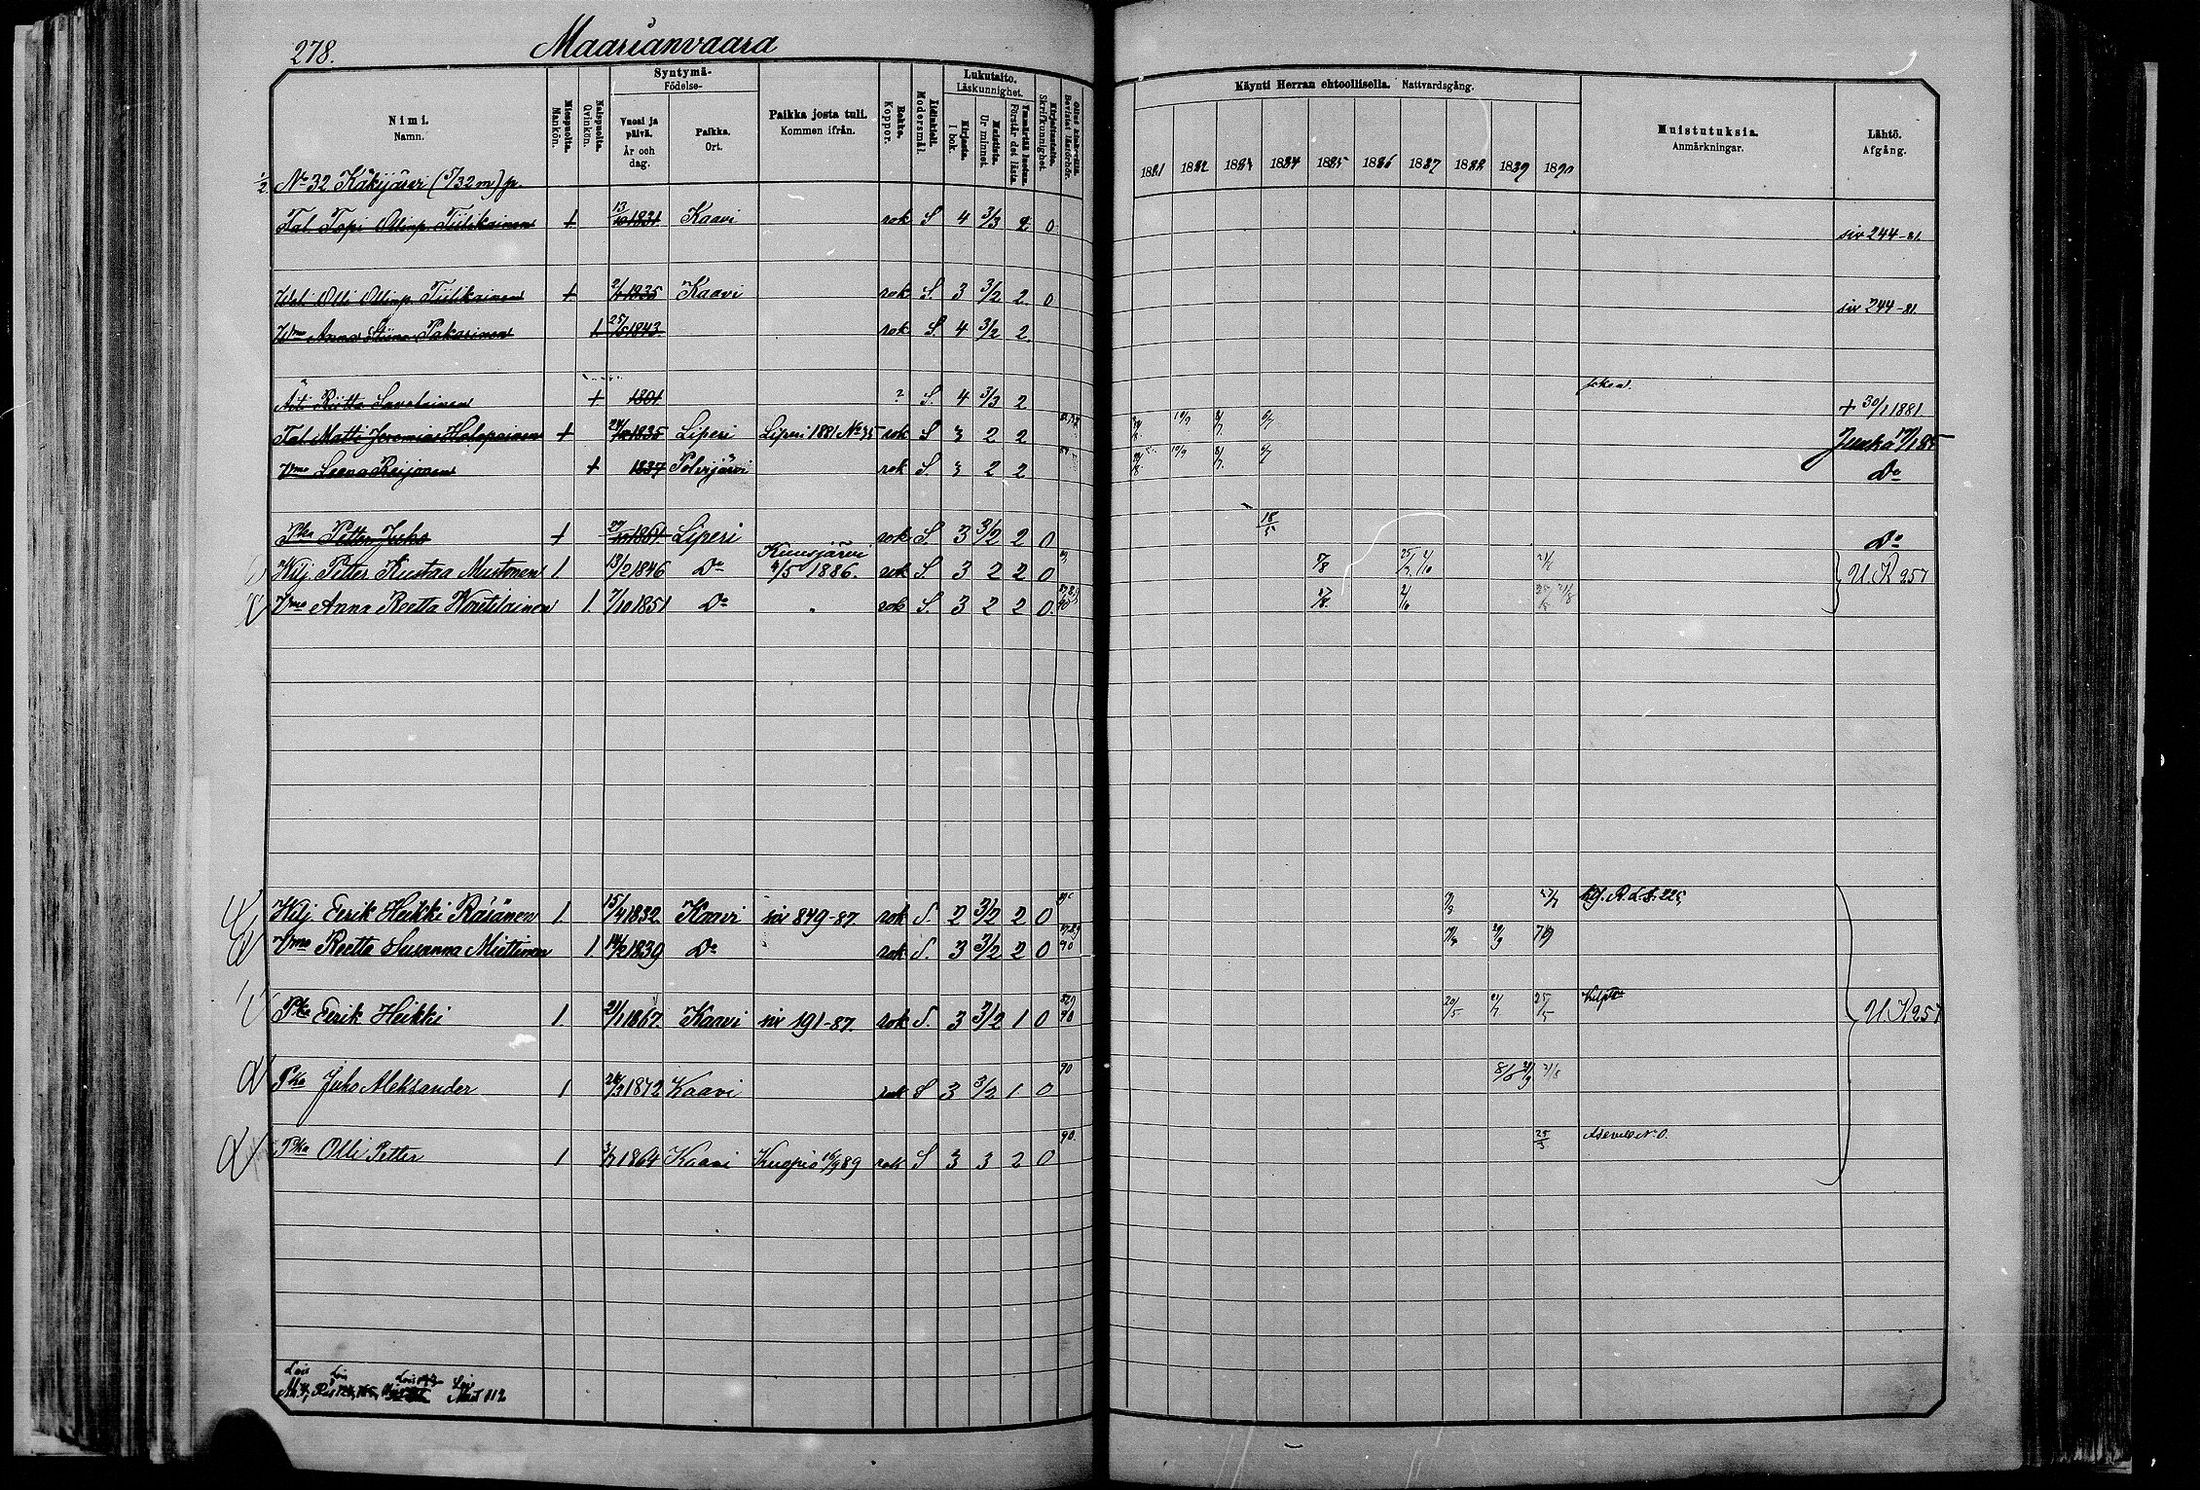 278. Maarianvaara
Nimi. Namn. Miespuolia. Mankön. Naispuolia. Qvinkön. Syntymä- Födelse- Vuosi ja päivä. År och dag. Paikka. Ort. Paikka josta tuli. Kommen ifrån. Rokko. Koppor. Äidinkieli. Modersmål. Lukutaito. Läskunnighet. Kirjasta. I bok. Muistista. Ur minnet. Ymmärtää luetun. Förstår det lästa. Kirjoitustaito. Skrifkunnighet. Bevistat läsförhör.
Käynti Herran ehtoollisella. Nattvardsgång. 1881 1882 1883 1884 1885 1886 1887 1888 1889 1890 Muistutuksia. Anmärkningar. Lähtö. Afgång.
1/2 No 32 Käkijäsen (5/32 m) p.
Tal. Topi Ollinp. Tiilikainen + 13/10 1831 Kaavi rok S 4 3/3 2 0 siv 244-81.
Weli Olli Ollinp. Tiilikainen + 2/7 1835 Kaavi rok S. 3 3/2 2. 0 siv 244-81.
Wmo Anna Stiina Pakarinen 1 25/5 1843 rok S. 4 3/2 2.
Äiti Riitta Savolainen + 1801 ? S. 4 3/3 2 + 30/1 1881
Tal Matti Jeremias Halopainen + 1835 Liperi Liperi 1881 No 35 rok S 3 2 2 Juuka 17/1 85
Vmo Leena Reijonen + 1837 Polvijärvi rok S. 3 2 2 Do
Pka Petter Juho + 1861 Liperi rok S. 3 3/2 2 0 18/5 Do
Wilj. Petter Kustaa Mustonen 1. 13/2 1846 Do Kuusjärvi 4/5 1886. rok S. 3 2 2 0 U. K 257
Vmo Anna Reetta Kontilainen 1. 7/10 1851 Do rok S. 3 2 2 0.
Wilj. Eerik Heikki Räsänen 1. 15/4 1832 Kaavi siv 849-87. rok S. 2 3/2 2 0
Vmo Reetta Susanna Miettinen 1 14/2 1839 Do rok S. 3 3/2 2 0
Pka Eerik Heikki 1. 21/1 1867. Kaavi siv 191-87. rok S. 3 3/2 1 0 20/5 25/5 U. K 257
Pka Juho Aleksander 1 1872 Kaavi rok S 3 3/2 1. 0 90
Pka Olli Petter 1 1864 Kaavi Kuopio 89 rok S 3 3 2 0 90. 25/5